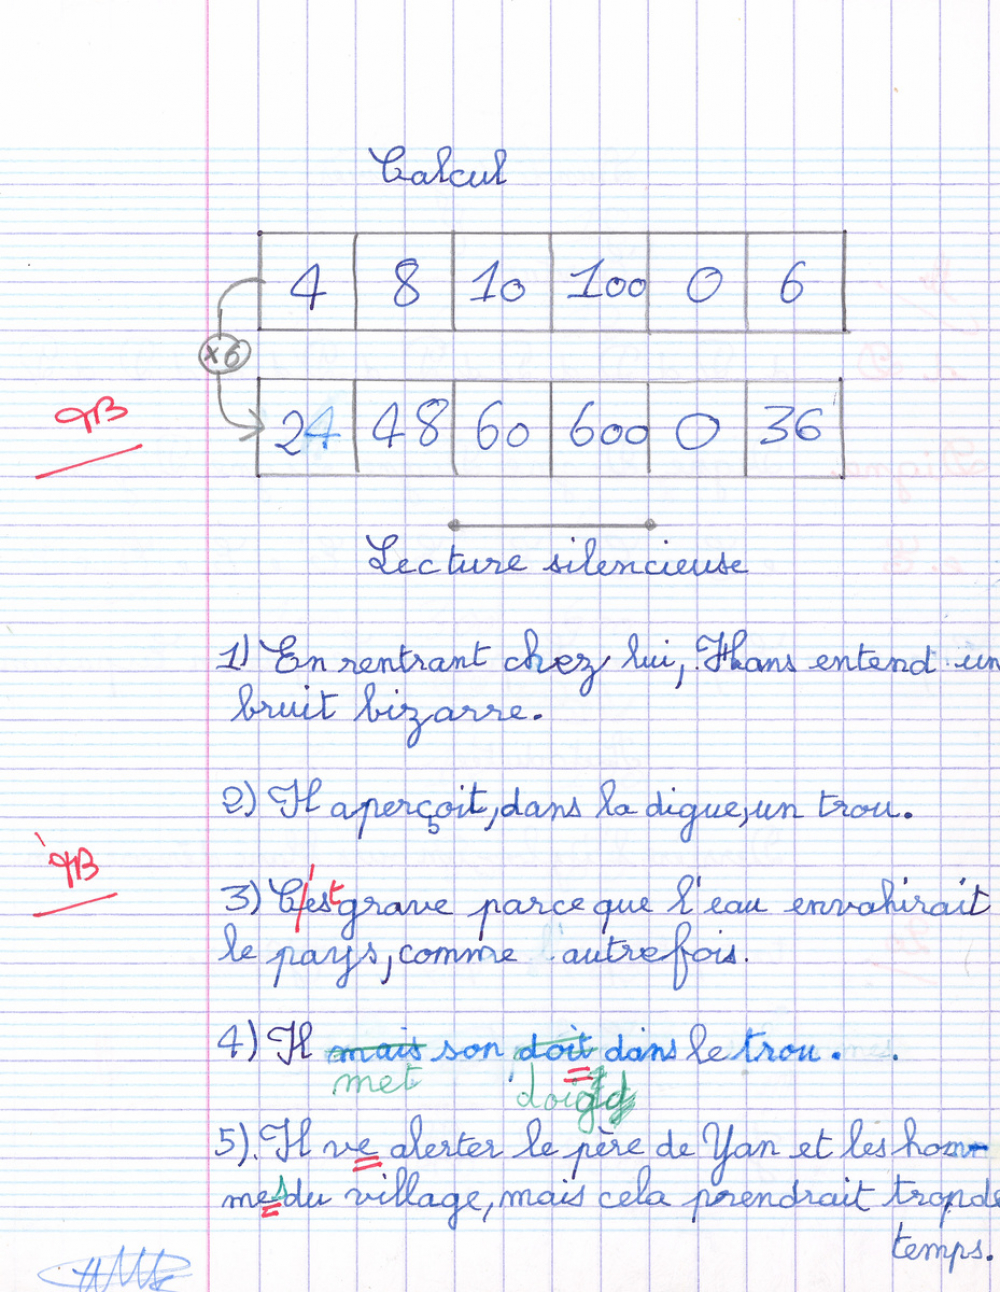 Calcul
4 8 10 100 0 6
×6
TB
24 48 60 600 0 36
Lecture silencieuse
1) En rentrant chez lui, Hans entend un
bruit bizarre.
2) Il aperçoit, dans la digue, un trou.
TB
3) C'est grave parce que l'eau envahirait
le pays, comme l'autrefois.
4) Il mais son doit dans le trou.
met doigt
5) Il ve alerter le père de Yan et les hom-
mes du village, mais cela prendrait trop de
temps.